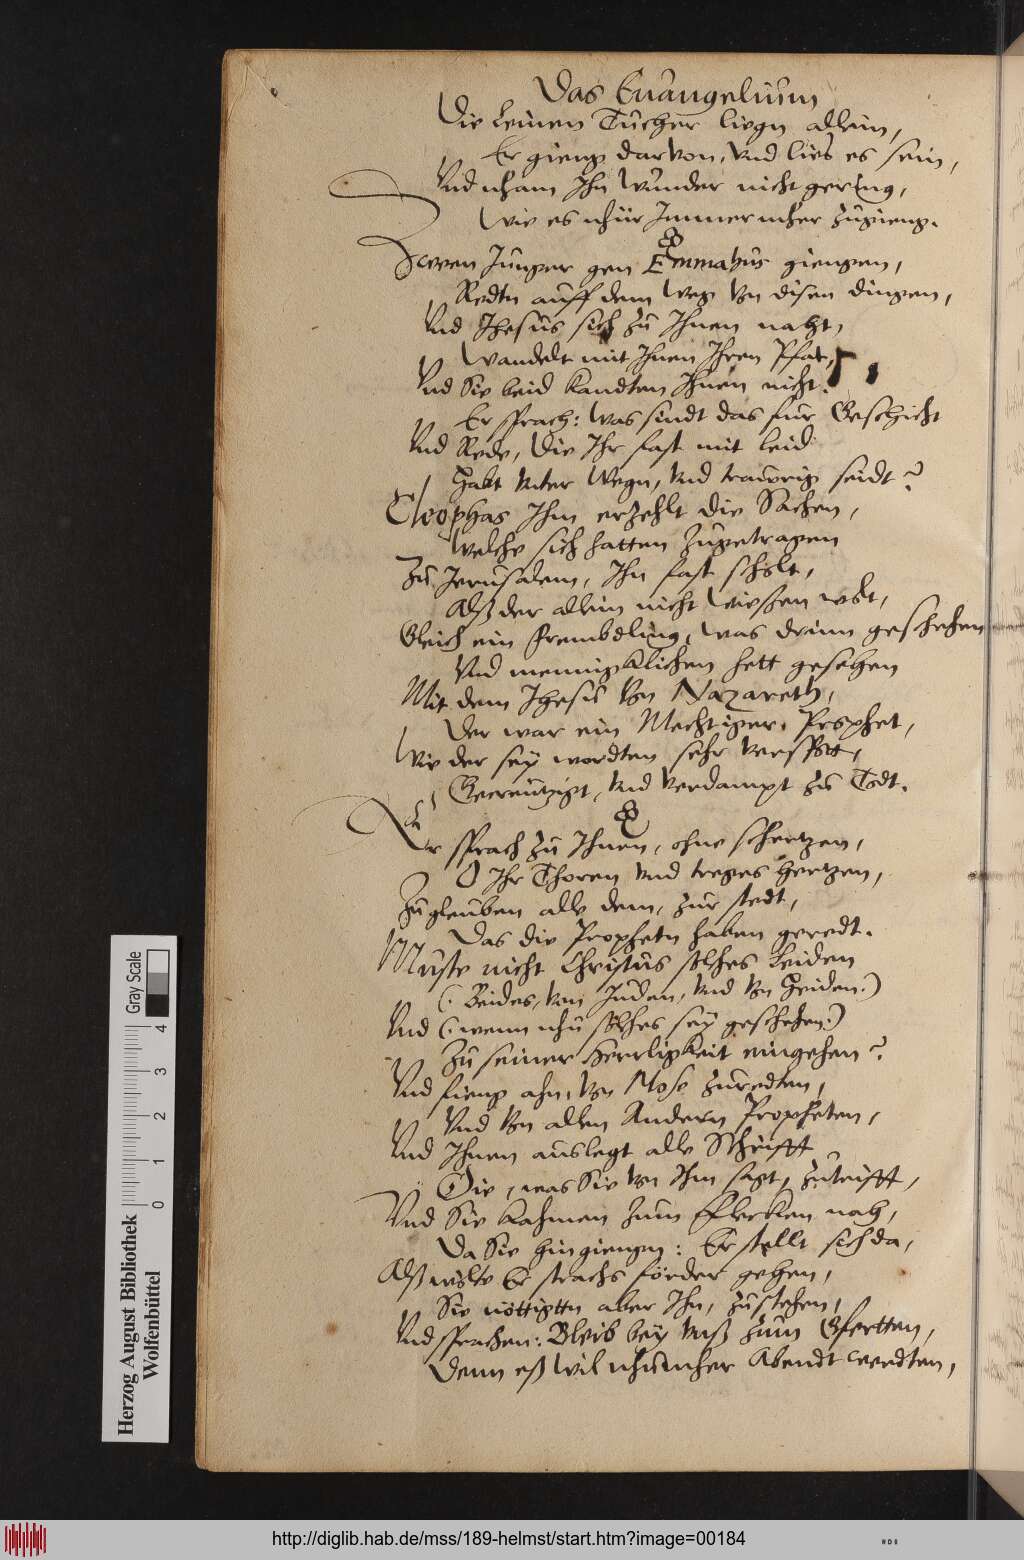 Das Euangelium
Die Leinen Tücher liegn allein,
Er gieng darvon, Vnd lies es sein,
Vnd nham Ihn Wunder nicht gering,
Wie es nhür Immermher zugieng.
Zween Junger gen Emmahus giengen,
Redtn auff dem Weg Von disen dingen,
Vnd Jhesus sich zu Ihnen naht,
Wandelt mit Ihnen Ihren Pfat,
Vnd Sie beid kandten Ihnen nicht.
Er sprach: Was sindt das fur Geschicht
Vnd Rede, Die Ihr fast mit leid
Habt Vnter Wegn, Vnd traurig seidt?
Cleophas Ihm erzehlt die Sachen,
Welche sich hatten zugetragen
Zu Jerusalem, Ihn fast scholt,
Alß der allein nicht Wießen wolt,
Gleich ein frembdling, Was drinn geschehen
Vnd menniglichen hett gesehen
Mit dem Jhesu Von Nazareth,
Der war ein Mechtiger Prophet,
Wie der sey wordten sehr Verspott,
Gecreutzigt, Vnd Verdampt zu Todt.
Er sprach zu Ihnen, ohne schertzen,
O Ihr Thoren Vnd treges hertzen,
Zugleuben alle dem, zur stedt,
Das die Prophetn haben geredt.
Muste nicht Christus solches Leiden
(: Beides, Von Juden, Vnd Von Heiden:)
Vnd (: wenn nhu solches sey geschehen:)
Zu seiner Herrligkeit eingehen?
Vnd fieng ahn, Von Mose zuredten,
Vnd Von allen Andern Propheten,
Vnd Ihnen auslegt alle Schrifft
Die, was Sie Von Ihm sagt, zutrifft,
Vnd Sie kahmen zum Flecken nah,
Da Sie hingiengen: Er stellt sich da,
Alß wolte Er strachs förder gehen,
Sie nöttigttn aber Ihn, zustehen,
Vnd sprachen: Bleib bey Vnß zum Gfertten,
Denn eß Wil nhumher Abendt werdten,
Gray Scale
0 1 2 3 4
Herzog August Bibliothek
Wolfenbüttel
http://diglib.hab.de/mss/189-helmst/start.htm?image=00184